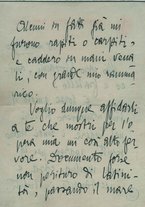 Alcuni in fatti già mi
furono rapiti o carpiti,
e caddero in mani vena
li, con grande mio ramma
rico.
Voglio dunque affidarli
a Te che mostri per l'o
pera mia un così alto fer
vore. Documento forse
non perituro di latini
tà, passando il mare